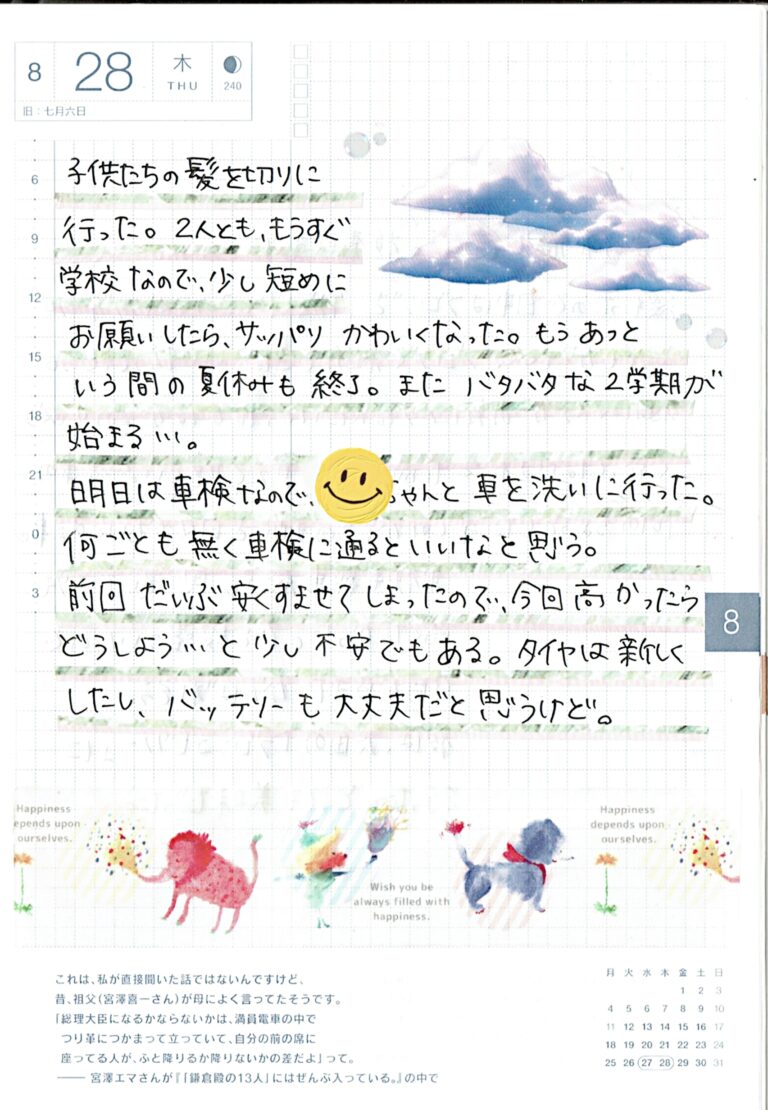 8
28
木
THU
240
旧：七月六日
6
9
12
15
18
21
0
3
子供たちの髪を切りに
行った。2人とも、もうすぐ
学校なので、少し短めに
お願いしたら、サッパリ かわいくなった。もう あっと
いう間の夏休みも 終了。また バタバタな 2学期が
始まる…。
明日は車検なので、ちゃんと 車を洗いに行った。
何ごとも無く車検に通るといいなと思う。
前回 だいぶ安くすませてしまったので、今回高かったら
どうしよう…と少し不安でもある。タイヤは新しく
したし、バッテリーも大丈夫だと思うけど。
8
Happiness
depends upon
ourselves.
Wish you be
always filled with
happiness.
Happiness
depends upon
ourselves.
これは、私が直接聞いた話ではないんですけど、
昔、祖父（宮澤喜一さん）が母によく言ってたそうです。
「総理大臣になるかならないかは、満員電車の中で
つり革につかまって立っていて、自分の前の席に
座ってる人が、ふと降りるか降りないかの差だよ」って。
―― 宮澤エマさんが『「鎌倉殿の13人」にはぜんぶ入っている。』の中で
月 火 水 木 金 土 日
1 2 3
4 5 6 7 8 9 10
11 12 13 14 15 16 17
18 19 20 21 22 23 24
25 26 27 28 29 30 31